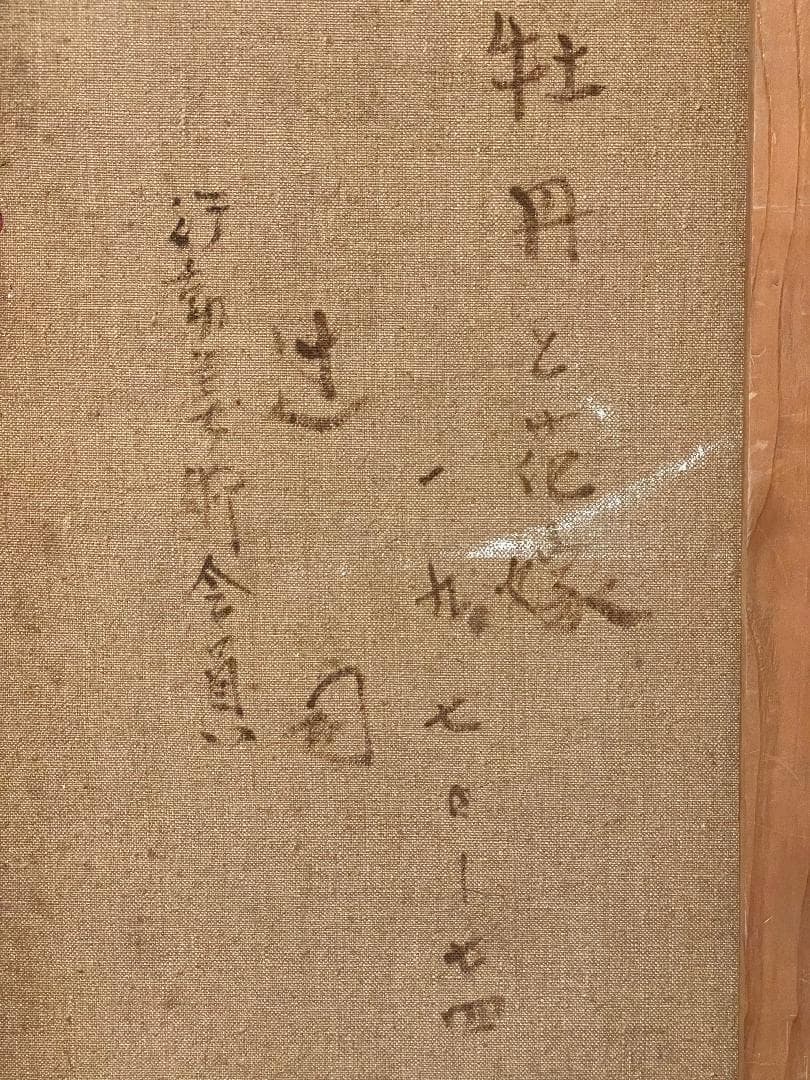 牡丹と花嫁
一九七〇一七四
辻 司
行動美術会員